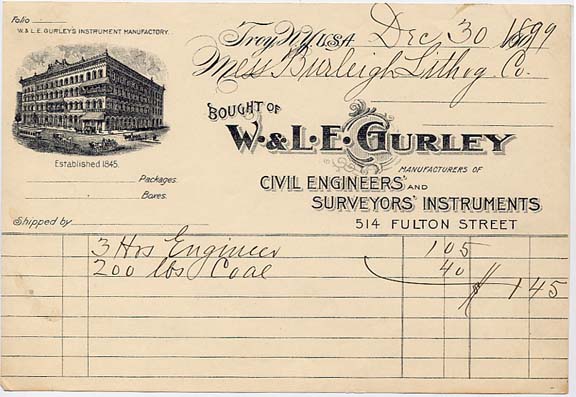 Folio
W. & L. E. GURLEY'S INSTRUMENT MANUFACTORY.
Established 1845.
Packages.
Boxes.
Shipped by
Troy, N.Y., U.S.A. Dec 30 1899
Mess Burleigh Lithog Co.
BOUGHT OF
W. & L. E. GURLEY
MANUFACTURERS OF
CIVIL ENGINEERS' AND
SURVEYORS' INSTRUMENTS
514 FULTON STREET
3 Hrs Engineer 1 05
200 lbs Coal 40 1 45